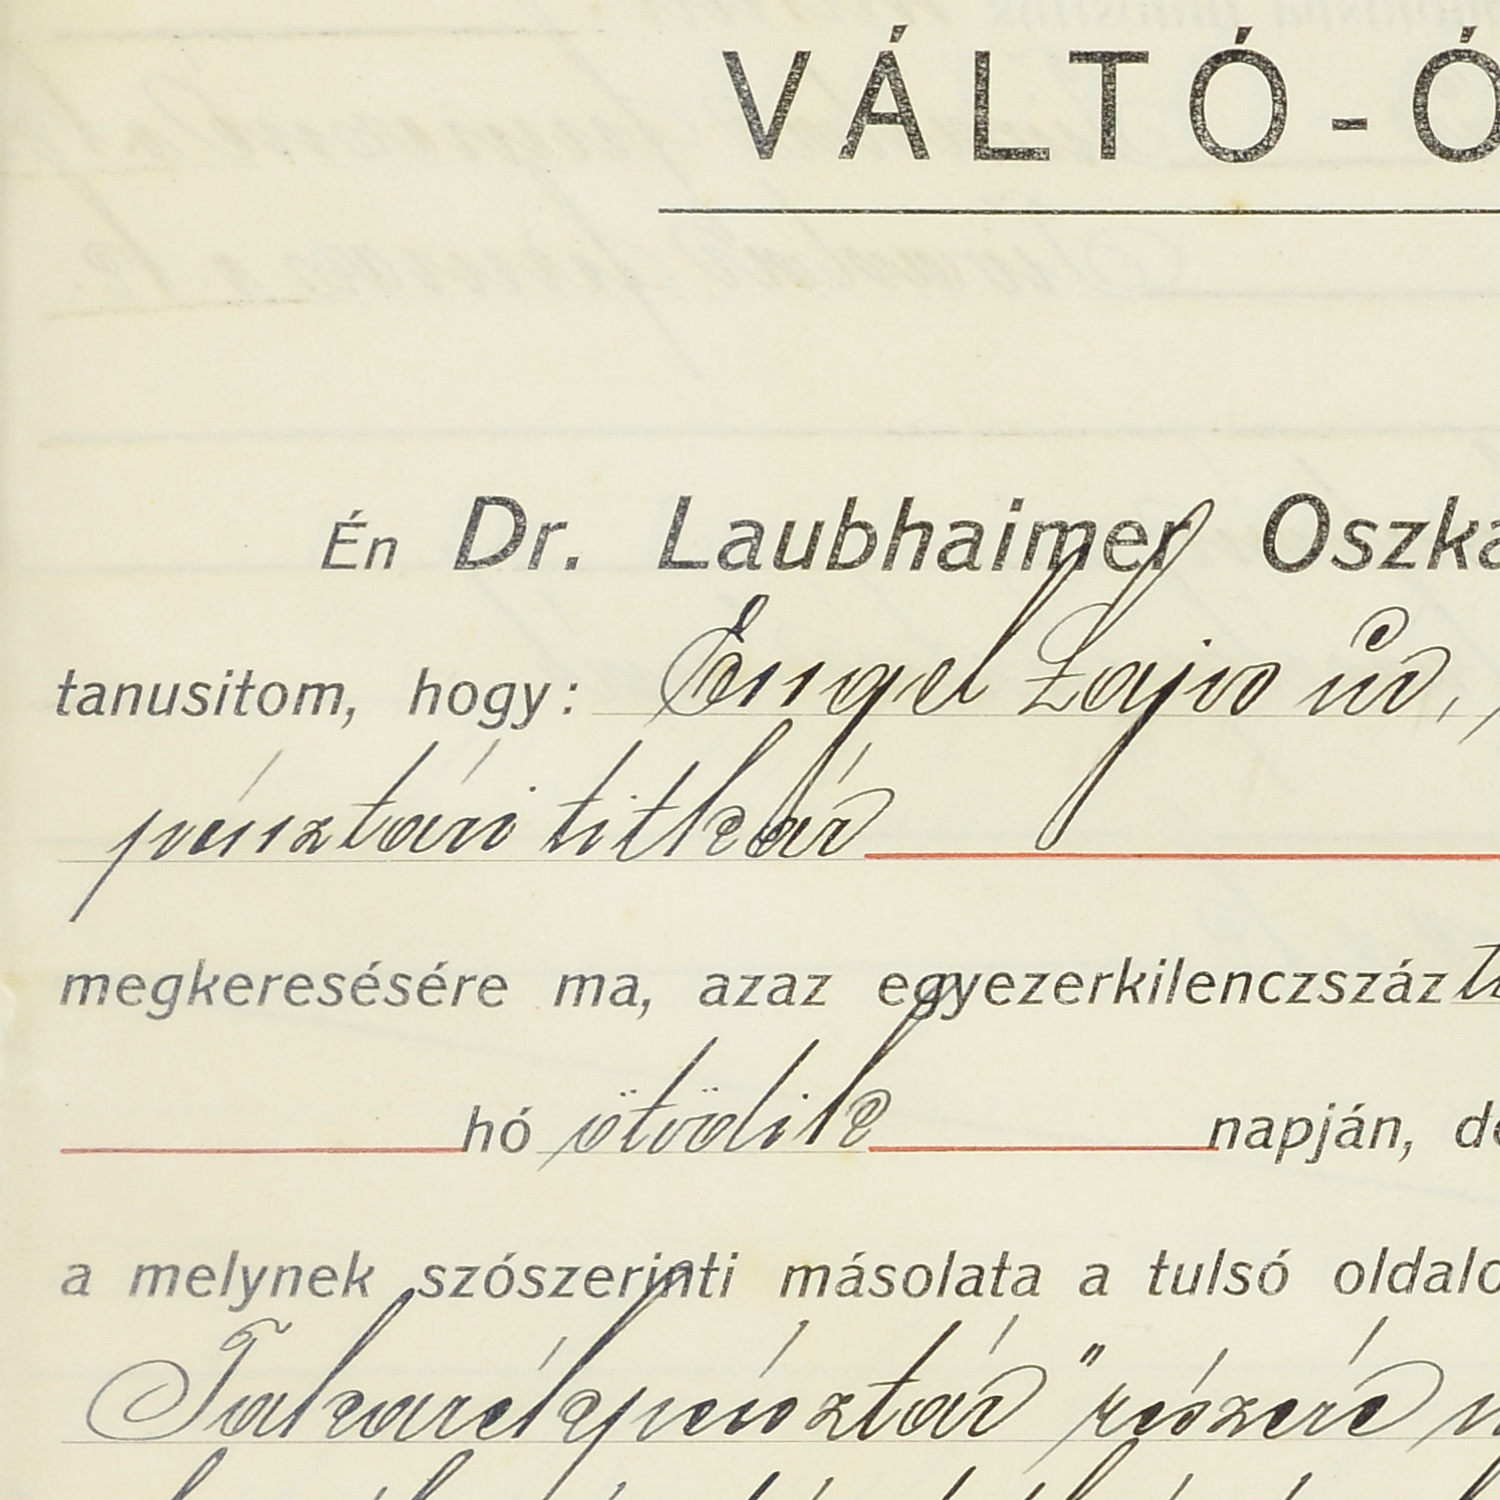 VÁLTÓ-Ó
Én Dr. Laubhaimer Oszká
tanusitom, hogy: Engel Lajos úr,
pénztári titkár
megkeresésére ma, azaz egyezerkilenczszáz
hó ötödik napján, de
a melynek szószerinti másolata a tulsó oldalo
Takarékpénztár" részére